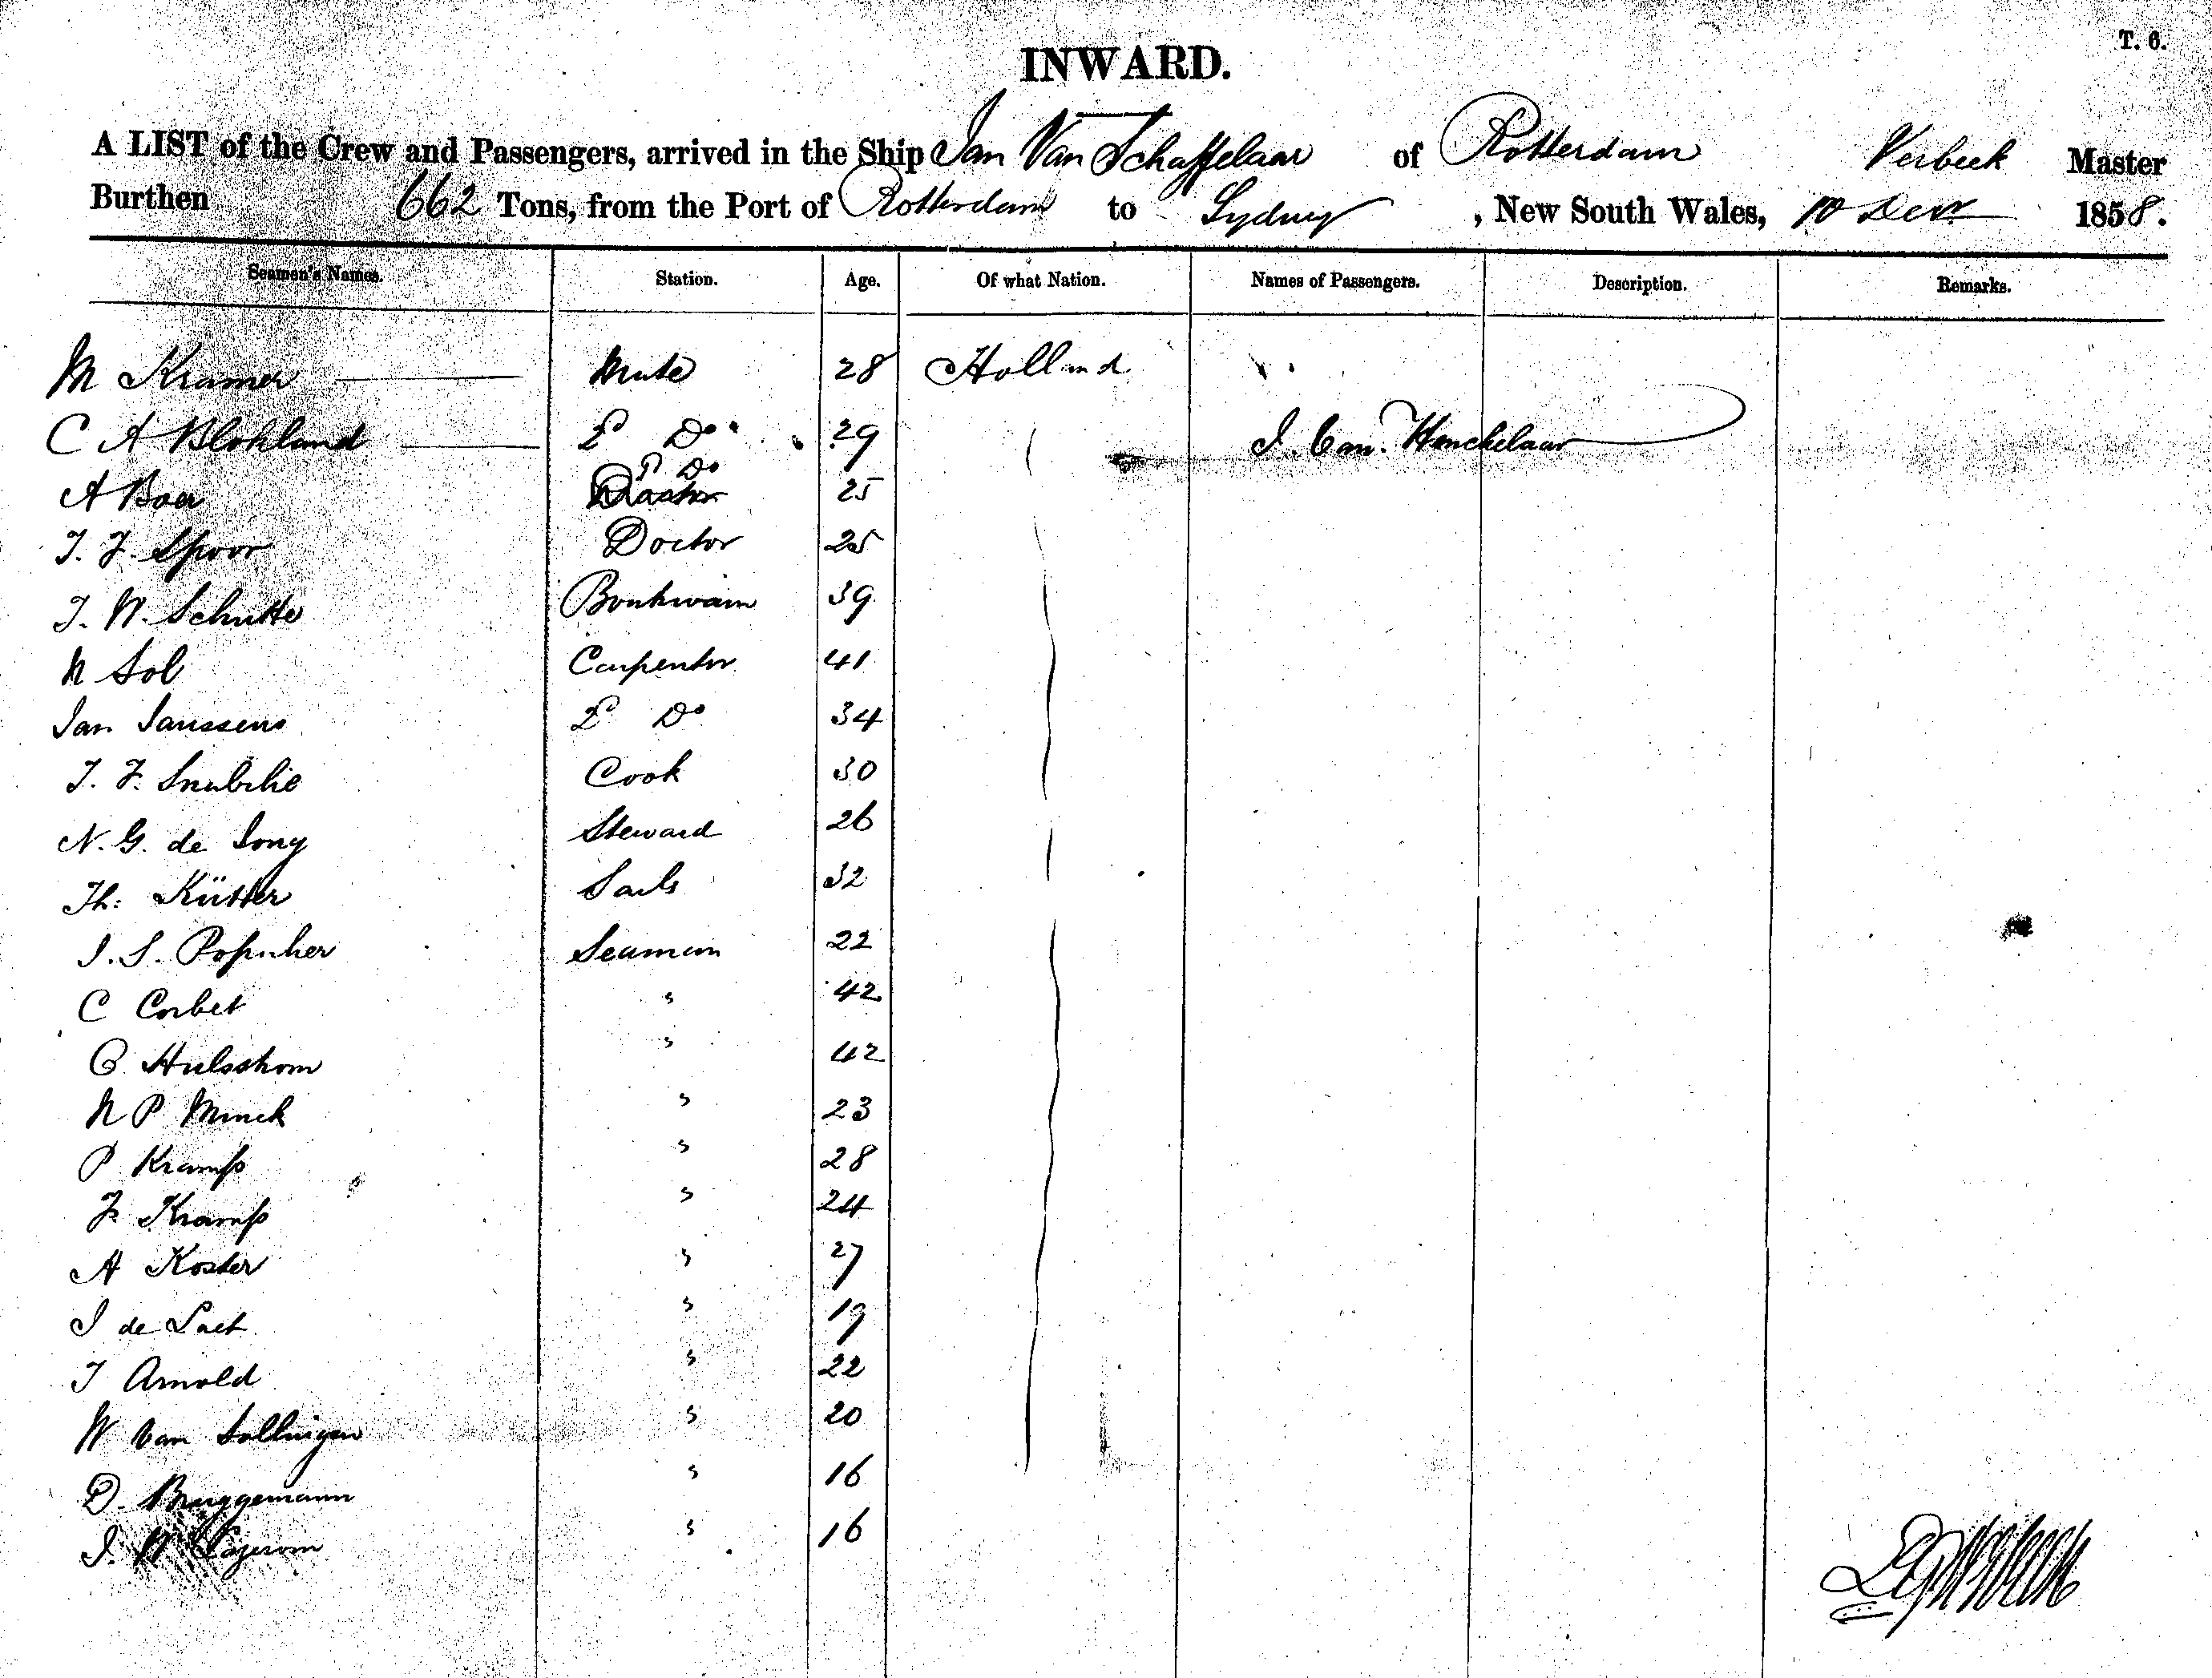 T. 6.
INWARD.
A LIST of the Crew and Passengers, arrived in the Ship Jan Van Schaffelaar of Rotterdam Verbeek Master
Burthen 662 Tons, from the Port of Rotterdam to Sydney, New South Wales, 10 Decr 1858.
Seamen's Names. Station. Age. Of what Nation. Names of Passengers. Description. Remarks.
M Kramer Mate 28 Holland
C A Blokland 2d Do 29 J. Van
A Boer Do 25
J. F. Spoor Doctor 25
J. W. Schutte 39
N Sol Carpenter 41
Jan Janssens 2d Do 34
J. F. Cook 30
N. G. de Jong Steward 26
Th: Kütter Sails 32
J. S. Seaman 22
C Corbet " 42
Hulsshom " 42
N P Minck " 23
P Kramp " 28
F. Kramp " 24
A Koster " 27
J de Laet " 19
J Arnold " 22
W van " 20
D. Bruggemann " 16
J. " 16